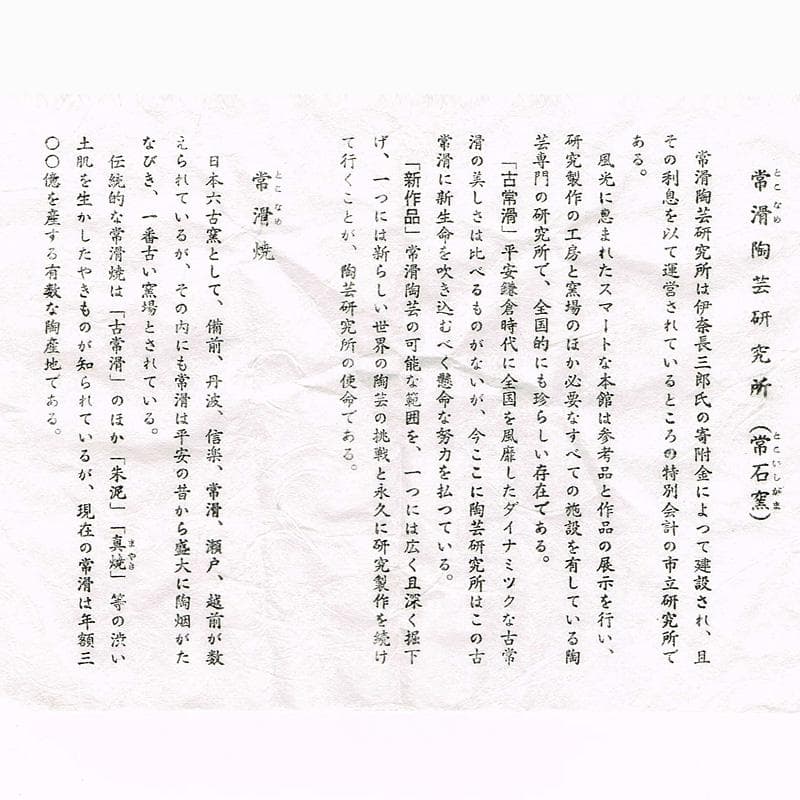 常滑陶芸研究所（常石窯）
とこなめ
とこいしがま
常滑陶芸研究所は伊奈長三郎氏の寄附金によつて建設され、且
その利息を以て運営されているところの特別会計の市立研究所で
ある。
風光に恵まれたスマートな本館は参考品と作品の展示を行い、
研究製作の工房と窯場のほか必要なすべての施設を有している陶
芸専門の研究所で、全国的にも珍らしい存在である。
「古常滑」平安鎌倉時代に全国を風靡したダイナミツクな古常
滑の美しさは比べるものがないが、今ここに陶芸研究所はこの古
常滑に新生命を吹き込むべく懸命な努力を払つている。
「新作品」常滑陶芸の可能な範囲を、一つには広く且深く掘下
げ、一つには新らしい世界の陶芸の挑戦と永久に研究製作を続け
て行くことが、陶芸研究所の使命である。
常滑焼
とこなめ
日本六古窯として、備前、丹波、信楽、常滑、瀬戸、越前が数
えられているが、その内にも常滑は平安の昔から盛大に陶烟がた
なびき、一番古い窯場とされている。
伝統的な常滑焼は「古常滑」のほか「朱泥」「真焼」等の渋い
まやき
土肌を生かしたやきものが知られているが、現在の常滑は年額三
〇〇億を産する有数な陶産地である。